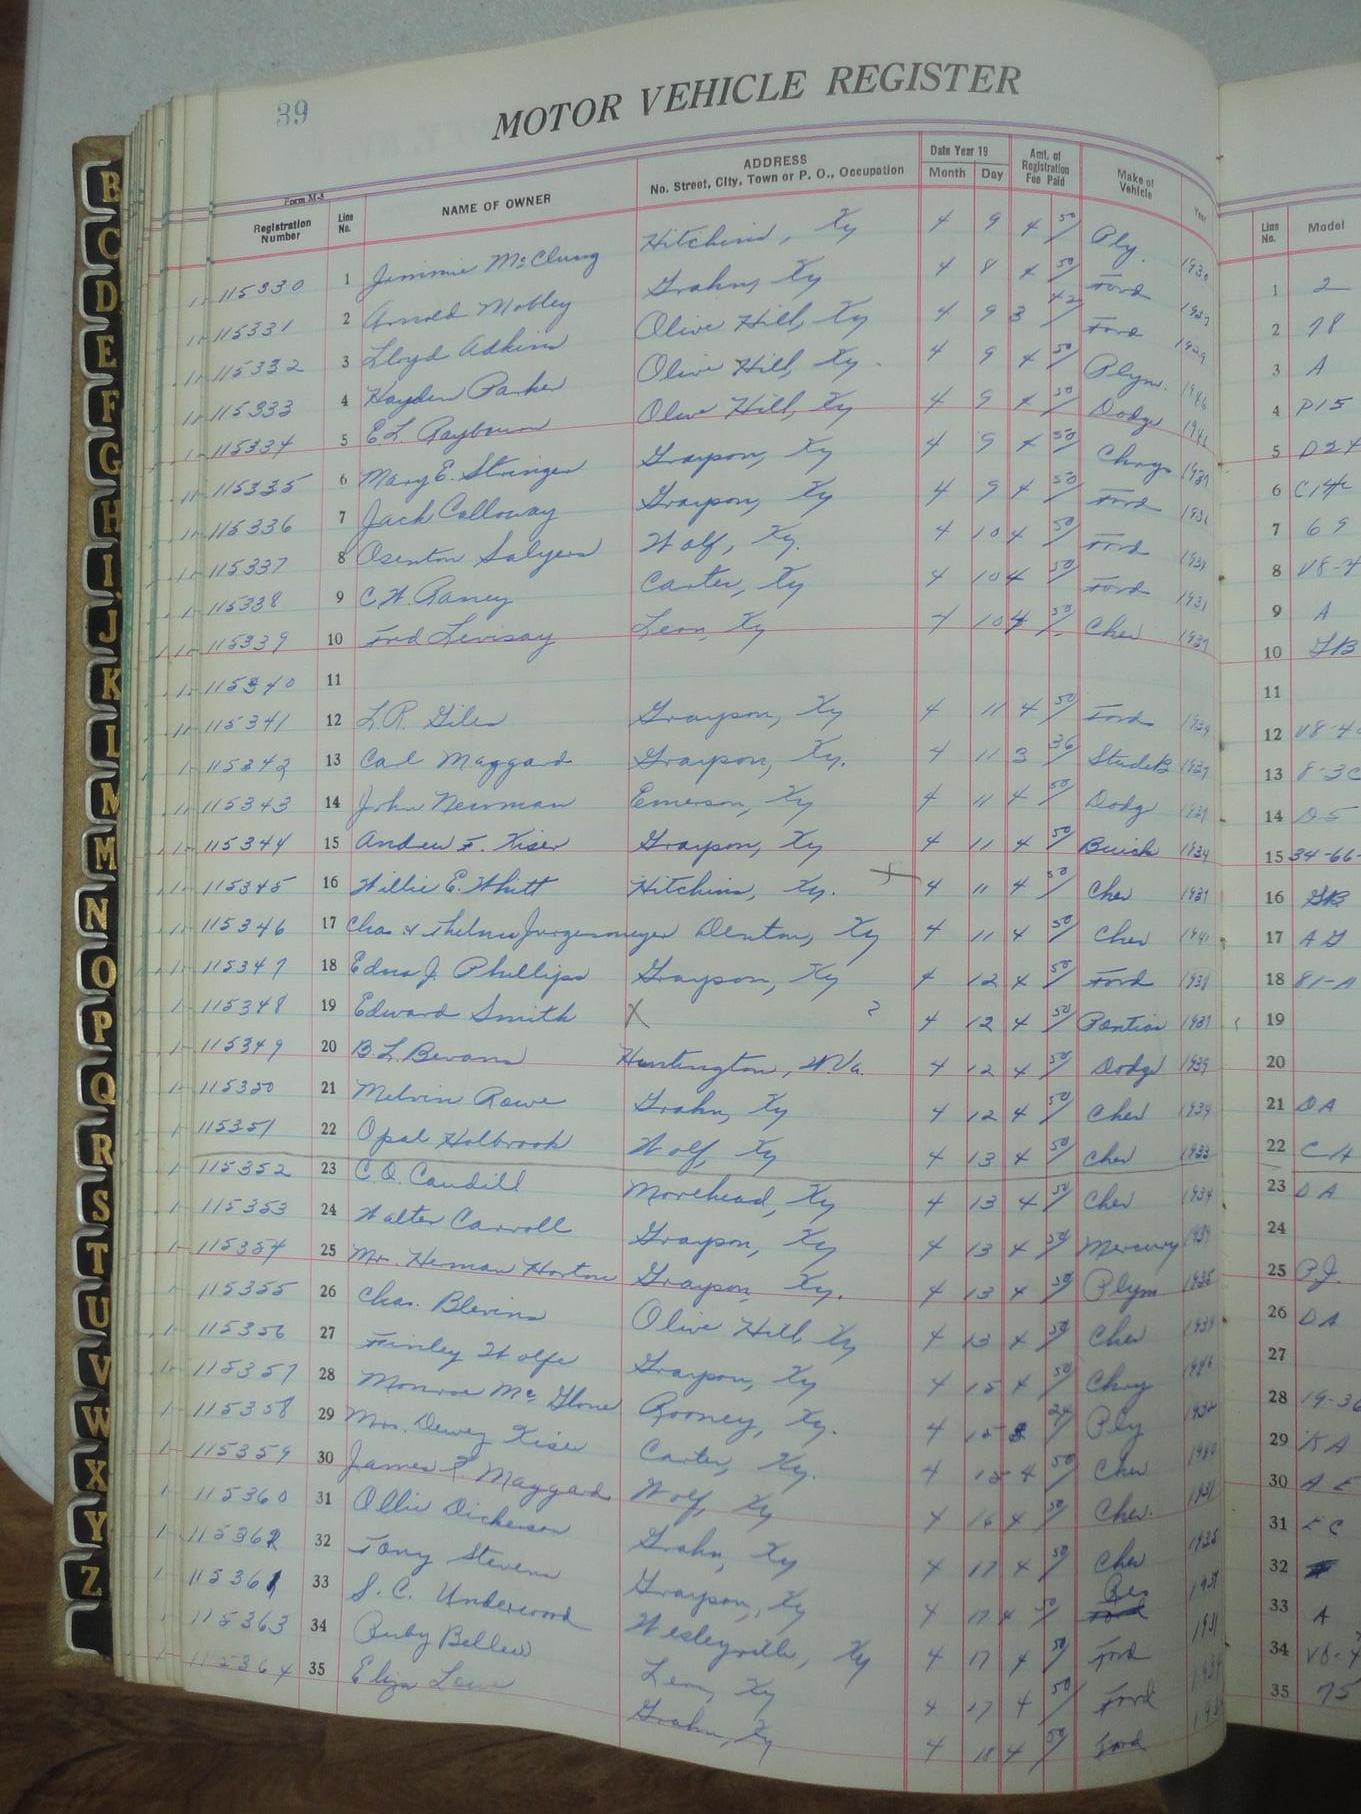 39
MOTOR VEHICLE REGISTER
Form M-3
Registration Number Line No. NAME OF OWNER ADDRESS No. Street, City, Town or P. O., Occupation Date Year 19 Month Day Amt. of Registration Fee Paid Make of Vehicle Year Line No. Model
115330 1 Jimmie McClung Hitchins, Ky 4 9 4 50 Ply. 1 2
115331 2 Arnold Mobley Grahn, Ky 4 8 4 50 Ford 2 78
115332 3 Lloyd Adkins Olive Hill, Ky 4 9 3 42 Ford 1929 3 A
115333 4 Hayden Parker Olive Hill, Ky. 4 9 4 50 Plym. 1946 4 P15
115334 5 E.L. Raybourn Olive Hill, Ky 4 9 4 50 Dodge 5 D24
115335 6 Mary E. Stringer Grayson, Ky 4 9 4 50 Chrys 1937 6
115336 7 Jack Calloway Grayson, Ky 4 9 4 50 Ford 1936 7 69
115337 8 Osenton Salyers Wolf, Ky. 4 10 4 50 Ford 8
115338 9 C.W. Raney Carter, Ky 4 10 4 50 Ford 1931 9 A
115339 10 Ford Levisay Leon, Ky 4 10 4 50 Chev 1937 10 GB
115340 11 11
115341 12 L.R. Giles Grayson, Ky 4 11 4 50 Ford 1934 12
115342 13 Carl Maggard Grayson, Ky. 4 11 3 36 StudeB 1937 13
115343 14 John Newman Emerson, Ky 4 11 4 50 Dodge 1937 14 D5
115344 15 Andrew F. Kiser Grayson, Ky 4 11 4 50 Buick 1934 15 34-66-
115345 16 Willie E. Whitt Hitchins, Ky. 4 11 4 50 Chev 1937 16 GB
115346 17 Chas & Thelma Jurgensmeyer Denton, Ky 4 11 4 50 Chev 1941 17 AG
115347 18 Edna J. Phillips Grayson, Ky 4 12 4 50 Ford 1938 18 81-A
115348 19 Edward Smith X ? 4 12 4 50 Pontiac 1937 19
115349 20 B.L. Bevans Huntington, W.Va. 4 12 4 50 Dodge 1939 20
115350 21 Melvin Rowe Grahn, Ky 4 12 4 50 Chev 1934 21 DA
115351 22 Opal Holbrook Wolf, Ky 4 13 4 50 Chev 1933 22 CA
115352 23 C.O. Caudill Morehead, Ky 4 13 4 50 Chev 1934 23 DA
115353 24 Walter Carroll Grayson, Ky 4 13 4 50 Mercury 1939 24
115354 25 Mr. Herman Horton Grayson, Ky. 4 13 4 50 Plym 1935 25 PJ.
115355 26 Chas. Blevins Olive Hill Ky 4 13 4 50 Chev 1934 26 DA
115356 27 Finley Wolfe Grayson, Ky 4 15 4 50 Chry 1946 27
115357 28 Monroe McGlone Rooney, Ky. 4 15 24 Ply 1932 28
115358 29 Mrs. Dewey Kiser Carter, Ky. 4 15 4 50 Chev 1940 29 KA
115359 30 James P. Maggard Wolf, Ky 4 16 4 50 Chev. 1931 30
115360 31 Ollie Dickerson Grahn, Ky 4 17 4 50 Chev 31 EC
115362 32 Tony Stevens Grayson, Ky 4 17 4 50 32
115361 33 S. C. Underwood Wesleyville, Ky 4 17 4 50 Ford 1931 33 A
115363 34 Ruby Bellew Leon, Ky 4 17 4 50 Ford 34
115364 35 Eliza Lowe Grahn, Ky 4 18 4 50 Ford 35 75
B
C
D
E
F
G
H
I
J
K
L
M
M
N
O
P
Q
R
S
T
U
V
W
X
Y
Z